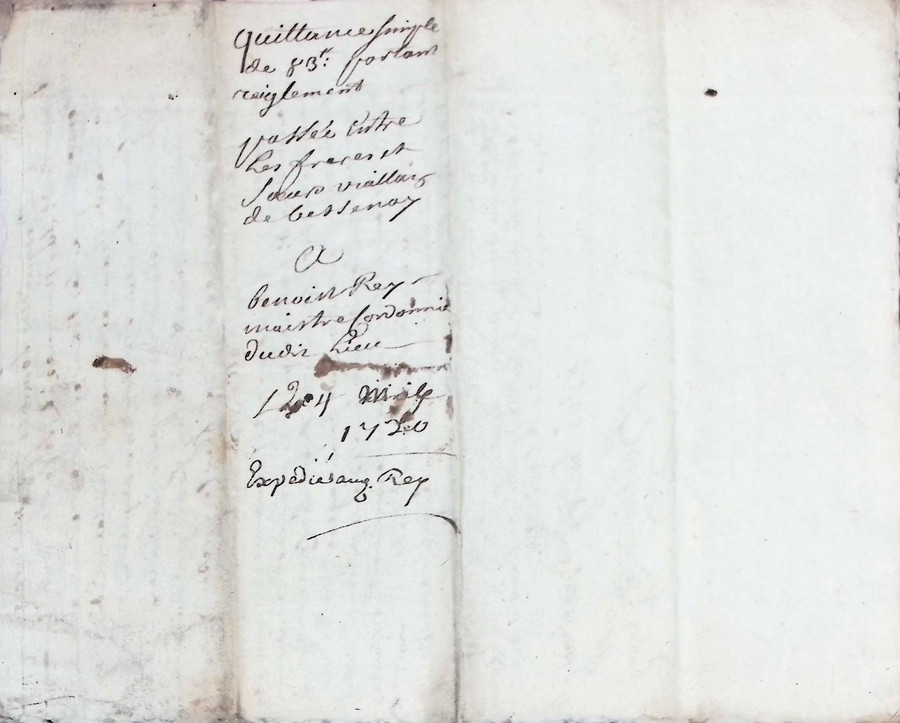 quittance simple
de 83ᵗᵗ: portant
reiglement
passée Entre
Les freres et
Soeurs viallay
de bessenay
A
benoist Rey
maistre Cordonnie
dudit Lieu
1720
Expedié aud. Rey